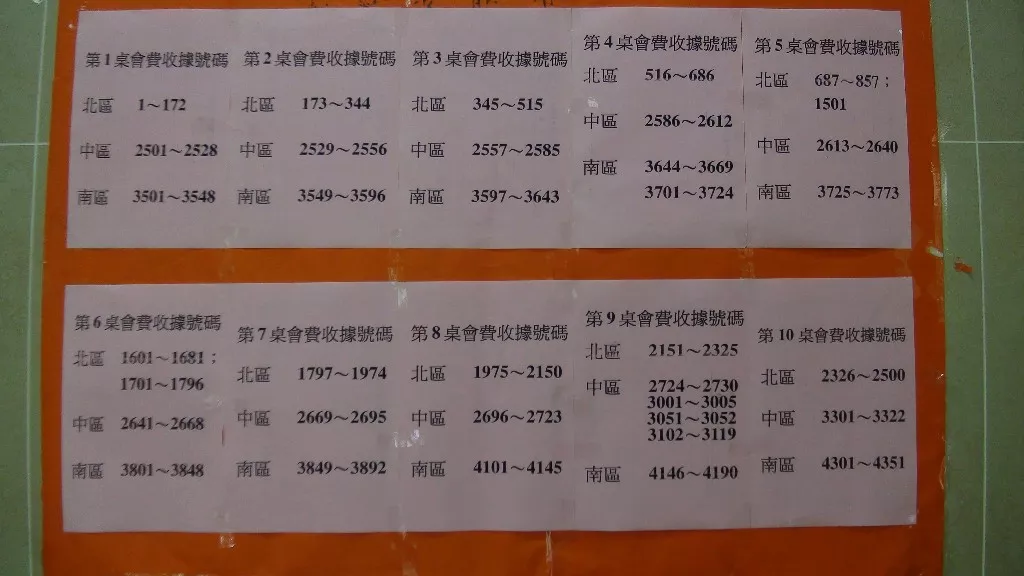 第1桌會費收據號碼
北區 1～172
中區 2501～2528
南區 3501～3548
第2桌會費收據號碼
北區 173～344
中區 2529～2556
南區 3549～3596
第3桌會費收據號碼
北區 345～515
中區 2557～2585
南區 3597～3643
第4桌會費收據號碼
北區 516～686
中區 2586～2612
南區 3644～3669
3701～3724
第5桌會費收據號碼
北區 687～857；
1501
中區 2613～2640
南區 3725～3773
第6桌會費收據號碼
北區 1601～1681；
1701～1796
中區 2641～2668
南區 3801～3848
第7桌會費收據號碼
北區 1797～1974
中區 2669～2695
南區 3849～3892
第8桌會費收據號碼
北區 1975～2150
中區 2696～2723
南區 4101～4145
第9桌會費收據號碼
北區 2151～2325
中區 2724～2730
3001～3005
3051～3052
3102～3119
南區 4146～4190
第10桌會費收據號碼
北區 2326～2500
中區 3301～3322
南區 4301～4351